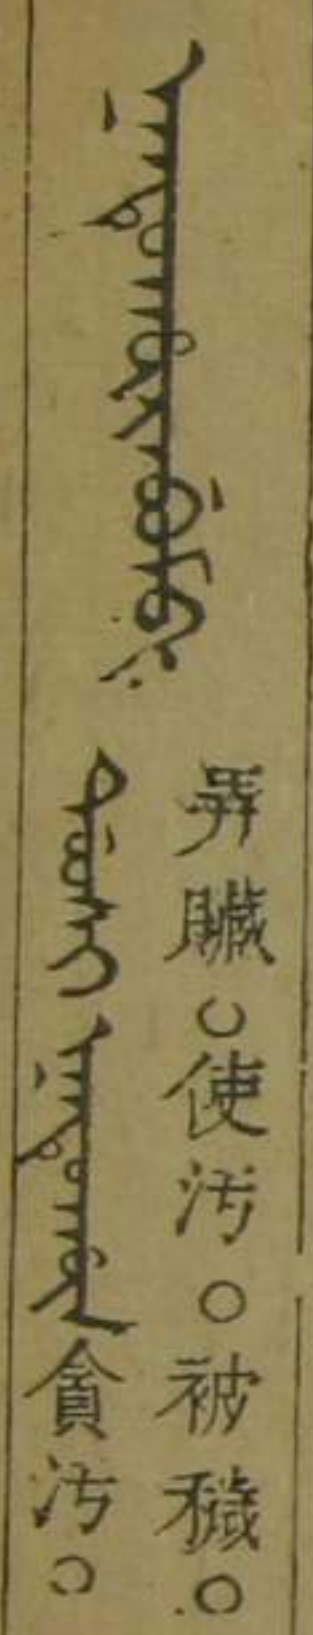 ᠨᠠᠨᡨᡠᡥᡡᡵᠠᠪᡠᠮᠪᡳ
弄臟。使汚。被穢。
ᡩᠣᠣᠰᡳ ᠨᠠᠨᡨᡠᡥᡡᠨ 貪汚。